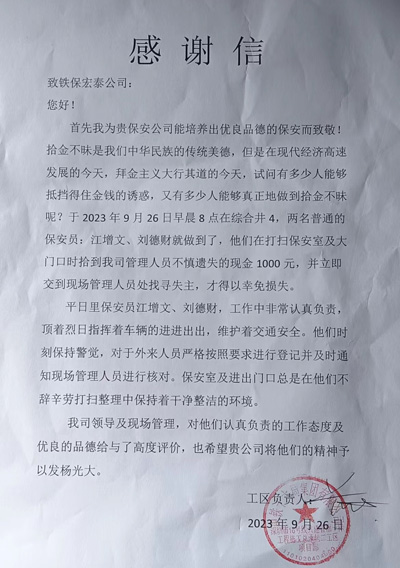 感谢信
致铁保宏泰公司：
您好！
首先我为贵保安公司能培养出优良品德的保安而致敬！
拾金不昧是我们中华民族的传统美德，但是在现代经济高速
发展的今天，拜金主义大行其道的今天，试问有多少人能够
抵挡得住金钱的诱惑，又有多少人能够真正地做到拾金不昧
呢？于 2023 年 9 月 26 日早晨 8 点在综合井 4，两名普通的
保安员：江增文、刘德财就做到了，他们在打扫保安室及大
门口时拾到我司管理人员不慎遗失的现金 1000 元，并立即
交到现场管理人员处找寻失主，才得以幸免损失。
平日里保安员江增文、刘德财，工作中非常认真负责，
顶着烈日指挥着车辆的进进出出，维护着交通安全。他们时
刻保持警觉，对于外来人员严格按照要求进行登记并及时通
知现场管理人员进行核对。保安室及进出门口总是在他们不
辞辛劳打扫整理中保持着干净整洁的环境。
我司领导及现场管理，对他们认真负责的工作态度及
优良的品德给与了高度评价，也希望贵公司将他们的精神予
以发杨光大。
工区负责人：
2023 年 9 月 26 日
项目部